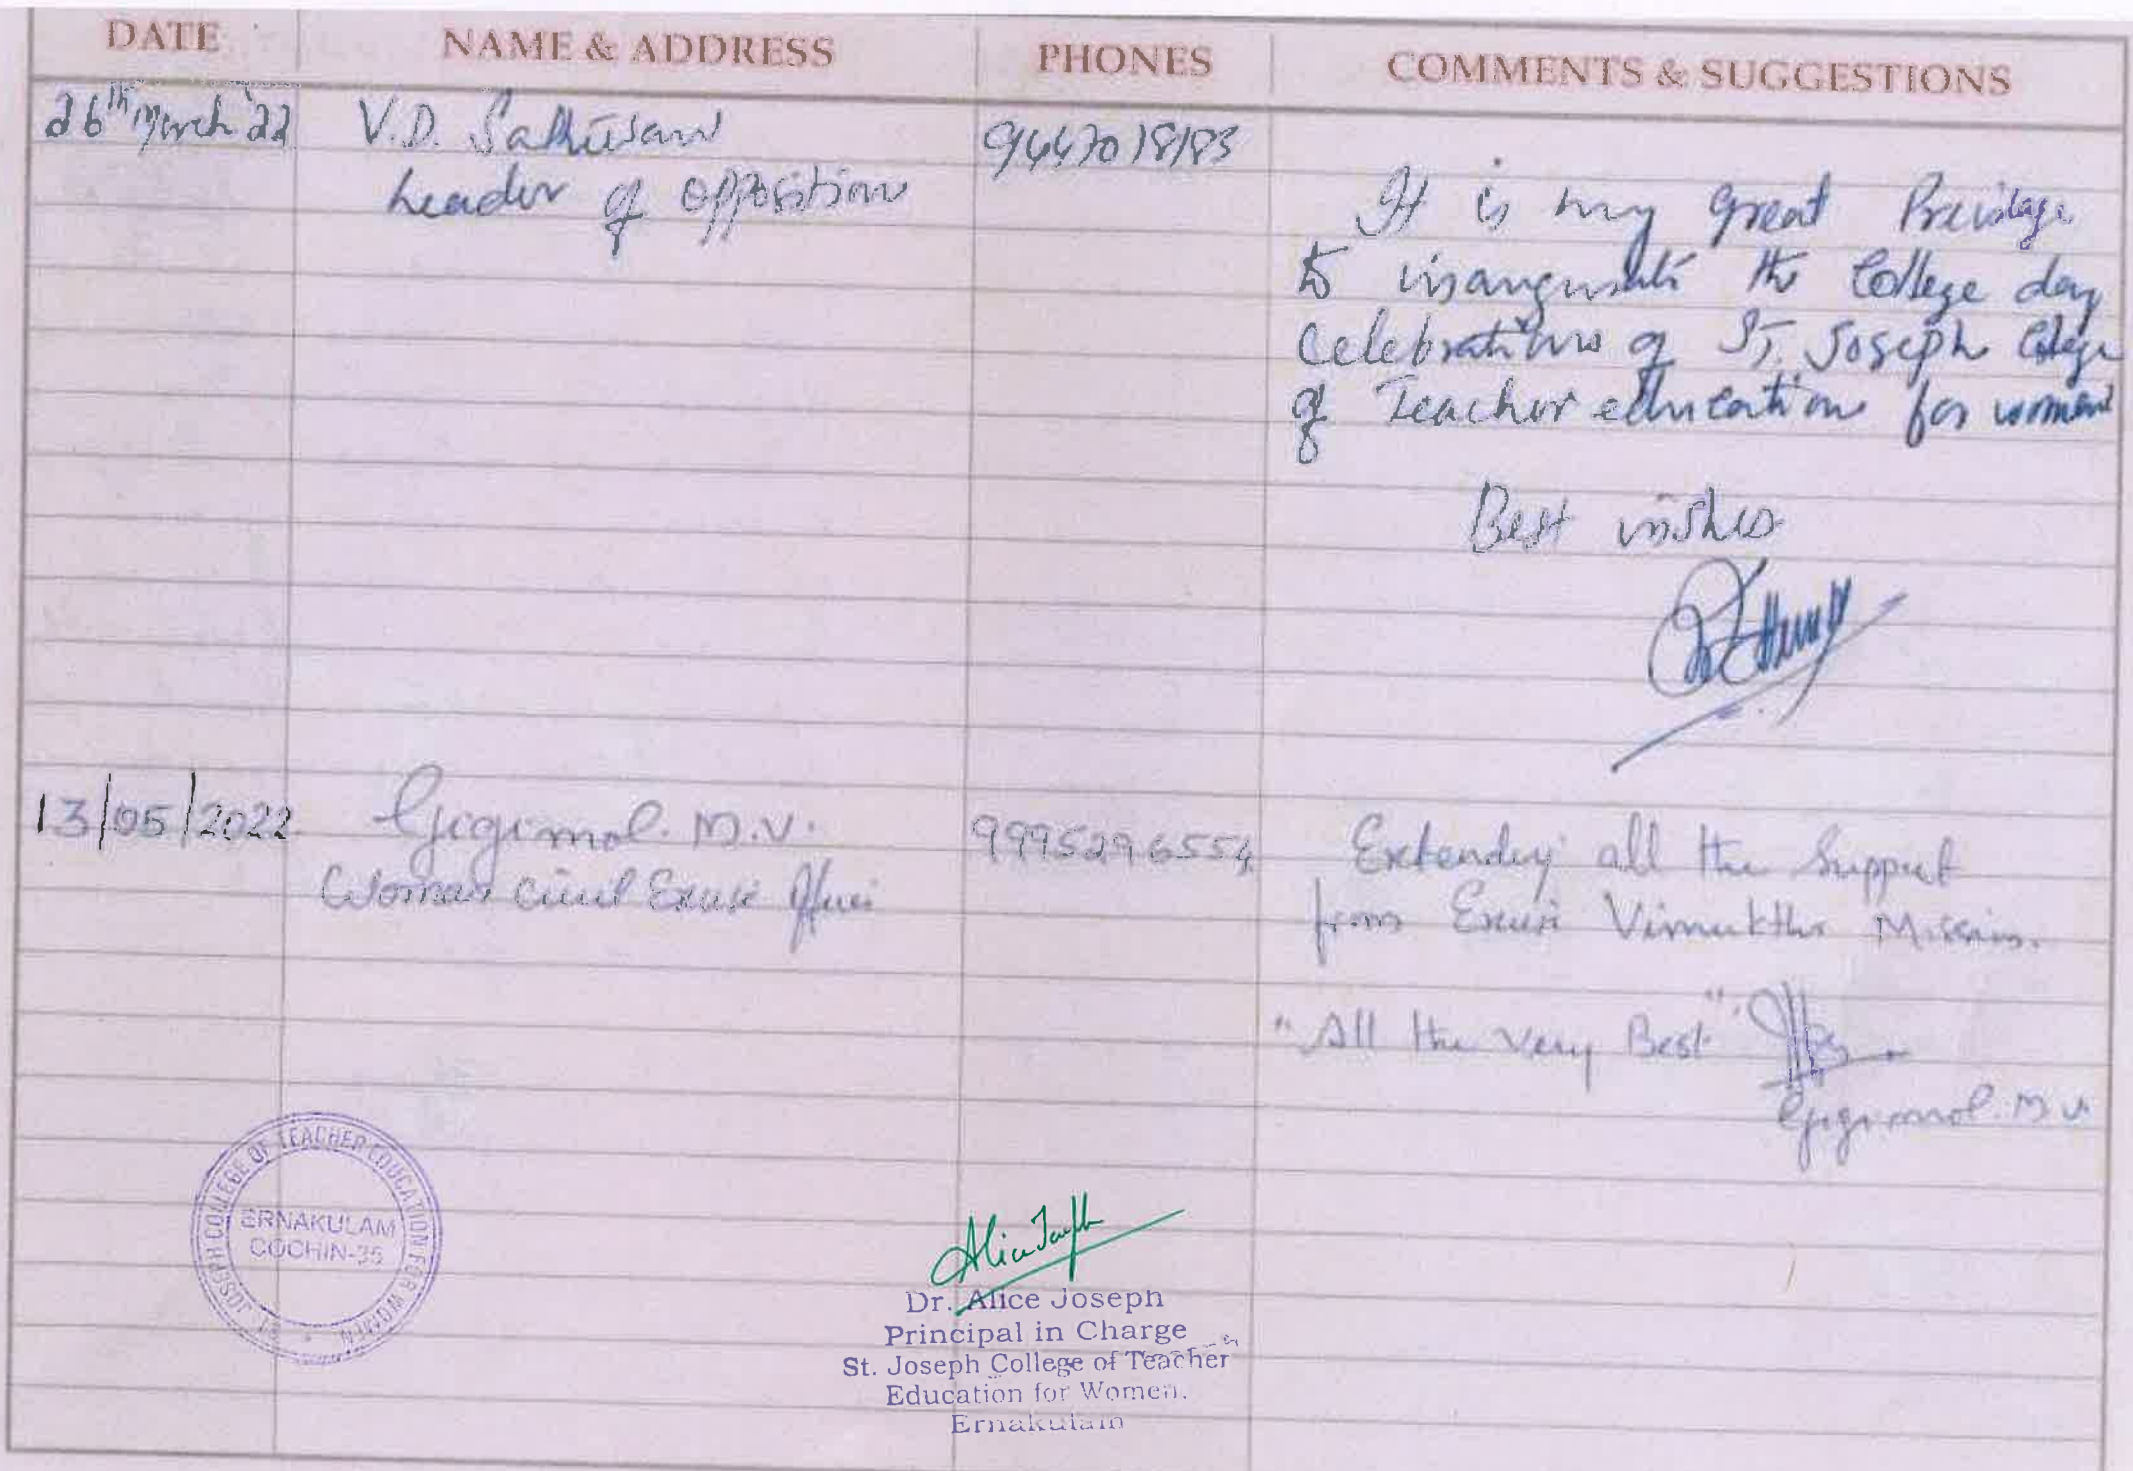 DATE NAME & ADDRESS PHONES COMMENTS & SUGGESTIONS
26th March '22 V.D. Satheesan 9447018183
Leader of Opposition
It is my great Privilage
to inaugurate the College day
Celebrations of ST. Joseph College
of Teacher education for women
Best wishes
13/05/2022 Gigimol. M.V. 9995296554
Woman Civil Excise Officer
Extending all the Support
from Excise Vimukthi Mission.
"All the Very Best"
Gigimol. M.V.
ST. JOSEPH COLLEGE OF TEACHER EDUCATION FOR WOMEN
ERNAKULAM
COCHIN-35
Alice Joseph
Dr. Alice Joseph
Principal in Charge
St. Joseph College of Teacher
Education for Women.
Ernakulam